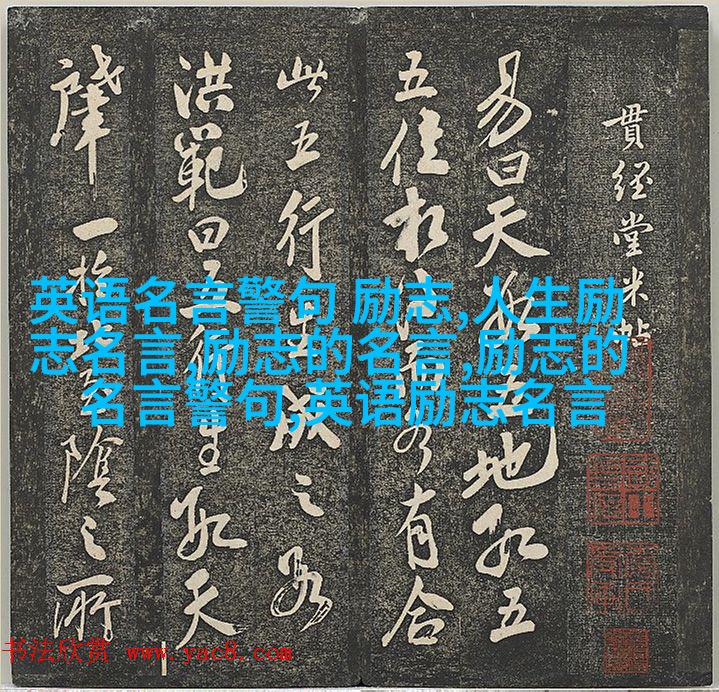 貫經堂米帖
易曰天數五地數五
五位相得而各有合
此五行生成之數
洪範曰五行生數天
一陰之所
英语名言警句 励志,人生励
志名言,励志的名言,励志的
名言警句,英语励志名言
书法欣赏 www.yac8.com